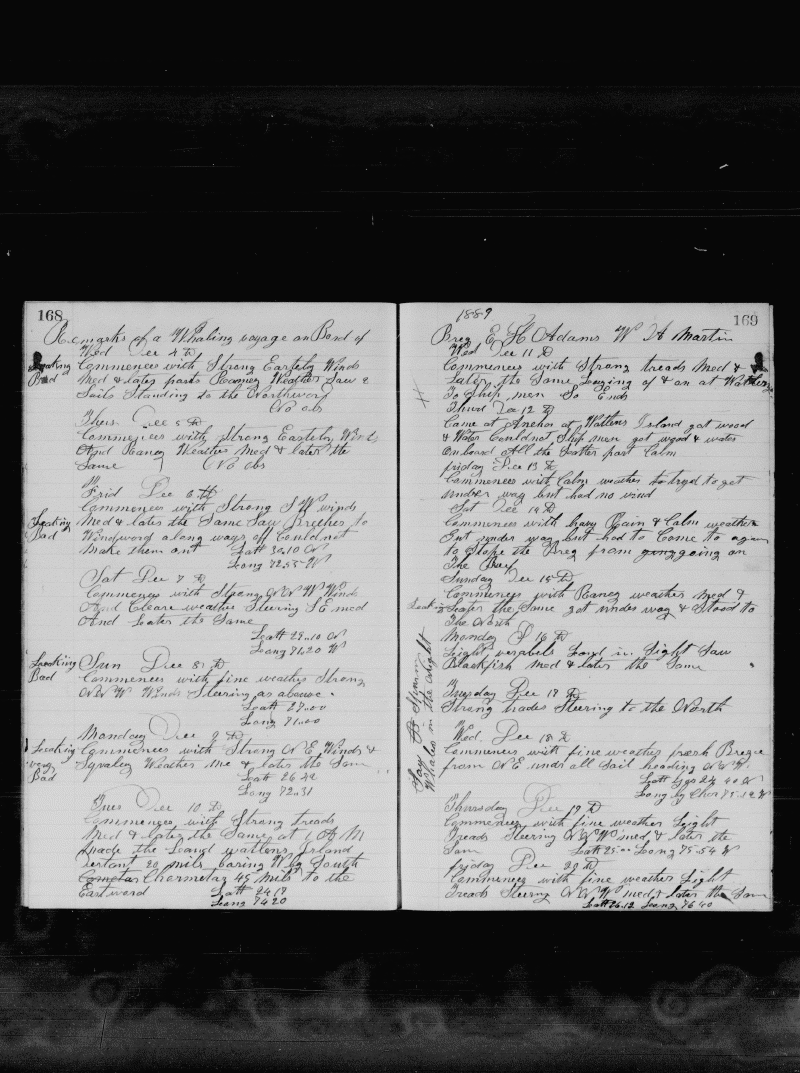 168
Remarks of a Whaling voyage on Bord of
Wed Dec 4 th
Leaking Commences with Strong Easterly Winds
Bad Med & later parts Raney Weather Saw 2
Sails Standing to the Northword
No obs
Thurs Dec 5 th
Commences with Strong Easterly Winds
And Raney Weather Med & later the
Same No obs
Frid Dec 6 th
Commences with Strong S W winds
Leaking Med & later the Same Saw Breeches to
Bad Windword along ways off Could not
Make them out Latt 30.10 N
Long 72.55 W
Sat Dec 7 th
Commences with Strong N N W Winds
And Cleare weather Steering S E med
And Later the Same
Latt 29.10 N
Long 71.20 W
Leaking Sun Dec 8 th
Bad Commences with fine weather Strong
N N W Winds Steering as above
Latt 27.00
Long 71.00
Monday Dec 9 th
Leaking Commences with Strong N E Winds &
very Squaley Weather Me & later the Sam
Bad Latt 26
Long 72.31
Tues Dec 10 th
Commences with Strong treads
Med & later the Same at 1 P M
made the Leand Wattens Island
distant 20 mils baring W by South
Chormetry 45 mils to the
Eastword Latt 24 17
Long 74 20
1889
169
Breg E H Adams W A Martin
Wed Dec 11 th
Commences with Strong treads Med &
Later the Same Laying of & on at
To Ship men So Ends
Thurd Dec 12 th
Came at Anchor at Wattens Island got wood
& Water Could not Ship men got wood & water
on bord All the Latter part Calm
friday Dec 13 th
Commences with Calm weather so tryd to get
under way but had no wind
Sat Dec 14 th
Commences with havy Rain & Calm weather
Got under way but had to Come to agan
to stope the Breg from going on
The Reef
Sunday Dec 15 th
Commences with Raney weather Med &
Leaking Later the Same got under way & Stood to
The North
Monday D 16 th
Light Land in Sight Saw
Blackfish Med & later the Same
Saw
Whales in the Night
Tuesday Dec 17 th
Strong trades Steering to the North
Wed Dec 18 th
Commences with fine weather fresh Breze
from N E under all Sail heading N N W
Latt 40 N
Long by Chor 75.12 W
Thursday Dec 19 th
Commences with fine weather Light
Treads Steering N N W med & later the
Sam Latt 25.00 Long 75.54 W
friday Dec 20 th
Commences with fine weather Light
Treads Steerig N N W med & later the Sam
Latt 26.12 Long 76 40